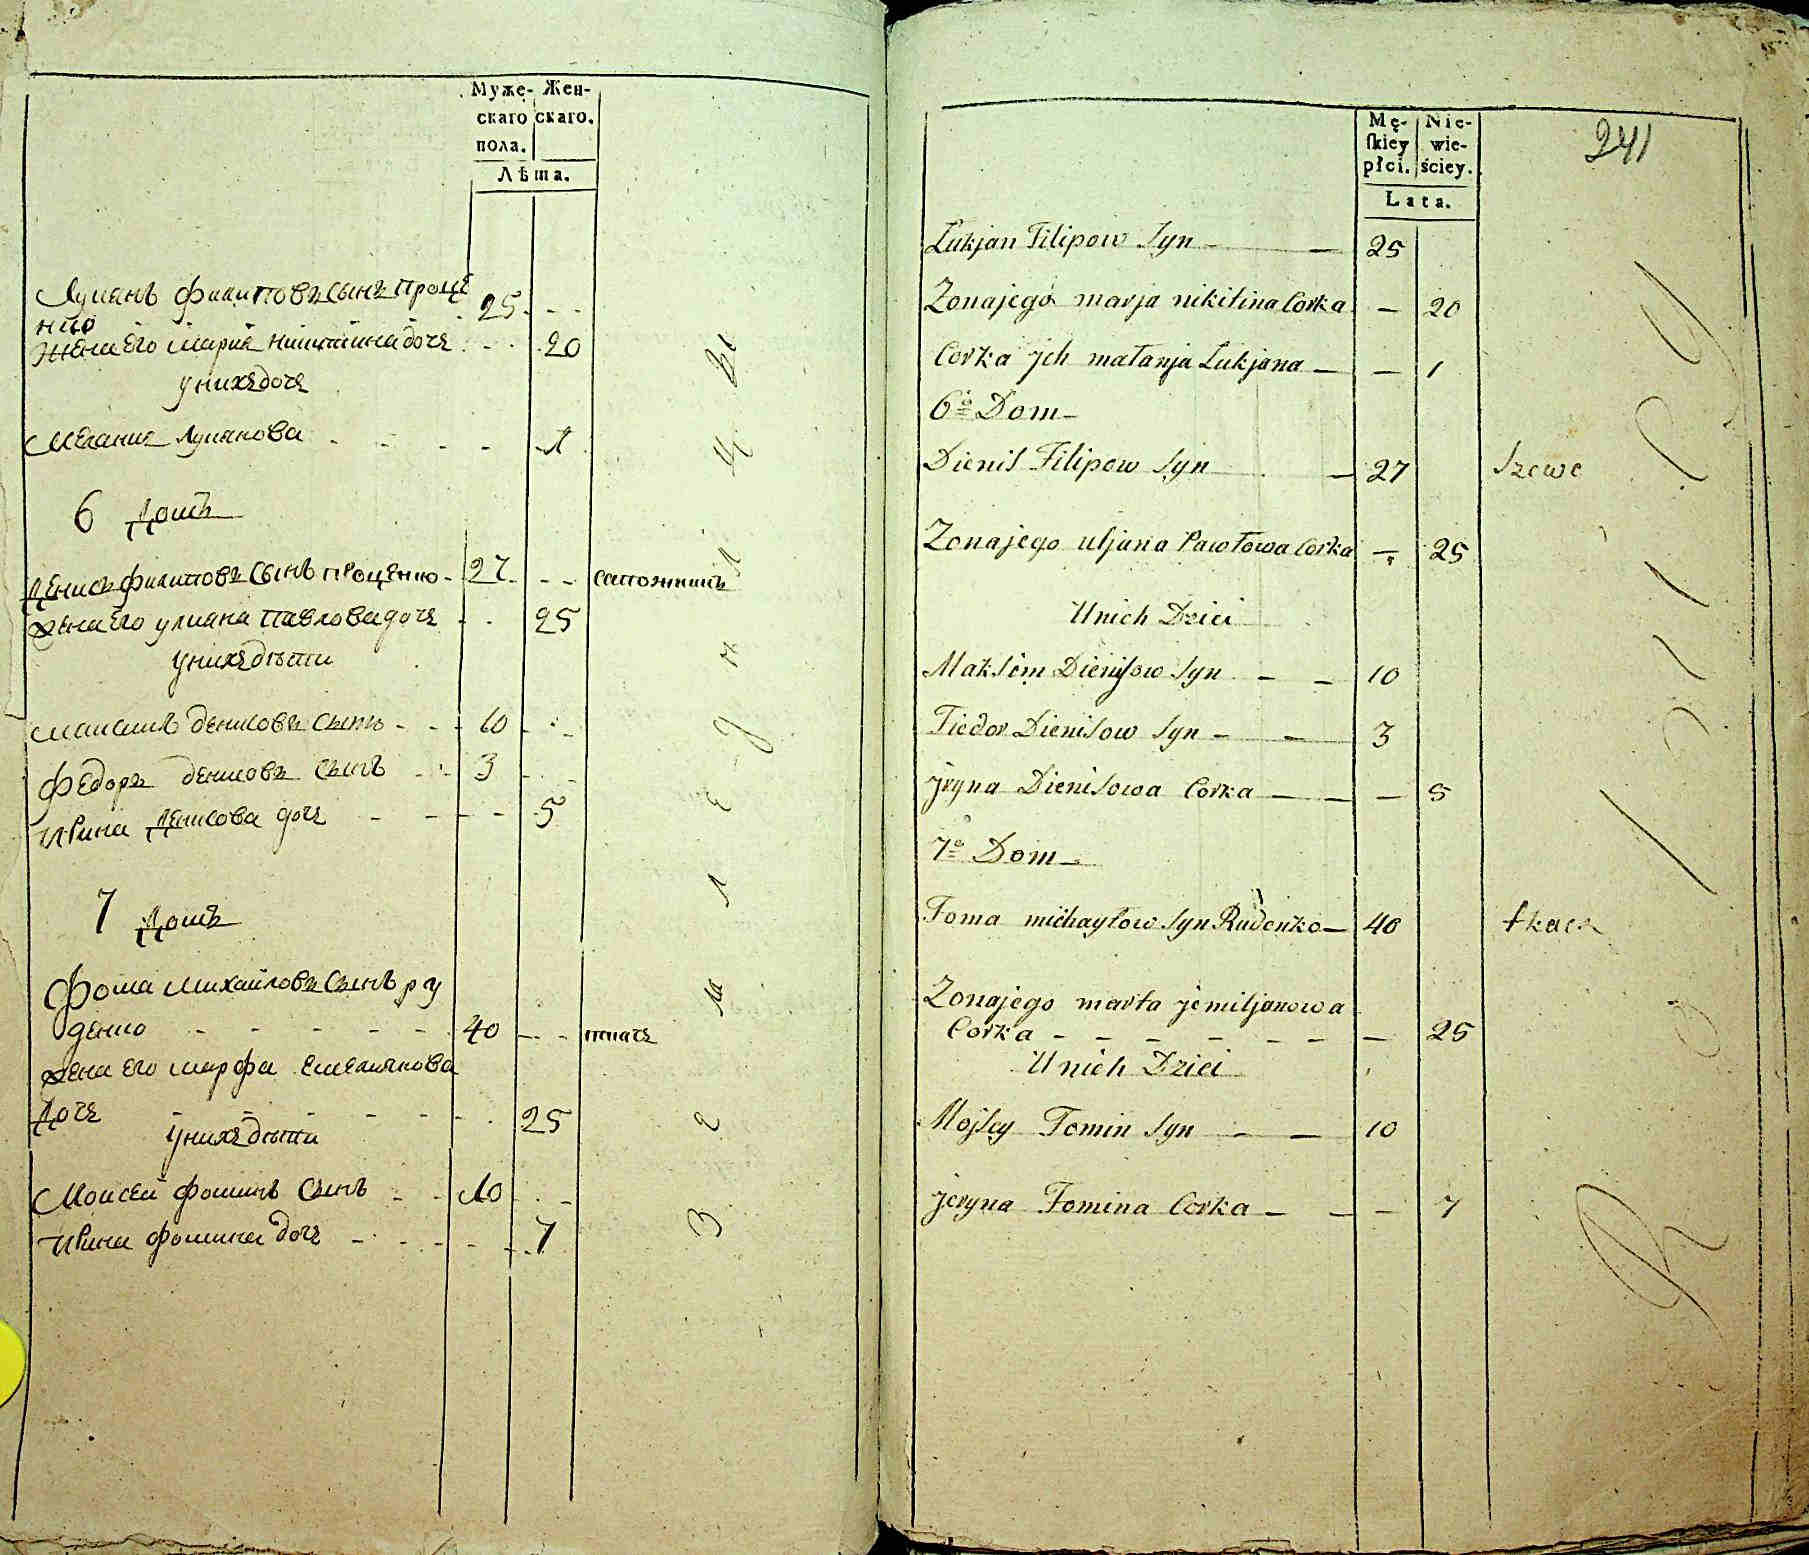 Муже- Жен-
скаго скаго.
пола.
Лѣта.
Лукянъ филиповъ сынъ проце
нко 25
жена его мария никитина дочь 20
у нихъ дочь
Мелания лукянова 1
6 домъ
денисъ филиповъ сынъ проценко 27 сапожникъ
жена его улияна павлова дочь 25
у нихъ дѣти
максимъ денисовъ сынъ 10
федоръ денисовъ сынъ 3
ирина денисова дочь 5
7 домъ
фома михайловъ сынъ ру
денко 40 ткачь
жена его марфа емелиянова
дочь 25
у нихъ дѣти
Моисей фоминъ сынъ 10
ирина фомина дочь 7
Mę- Nie-
skiey wie-
płci. ściey.
Lata.
241
Łukjan Filipow Syn 25
Zonajego marja nikitina Corka 20
Corka jch małanja Łukjana 1
6º Dom
Dienis Filipow Syn 27 Szewc
Zonajego uljana Pawłowa Corka 25
Unich Dzici
Maksim Dienisow Syn 10
Fiedor Dienisow Syn 3
jryna Dienisowa Corka 5
7º Dom
Foma michayłow Syn Rudenko 40 tkacz
Zonajego marta jemiljanowa
Corka 25
Unich Dzici
Mojsey Fomin Syn 10
jeryna Fomina Corka 7